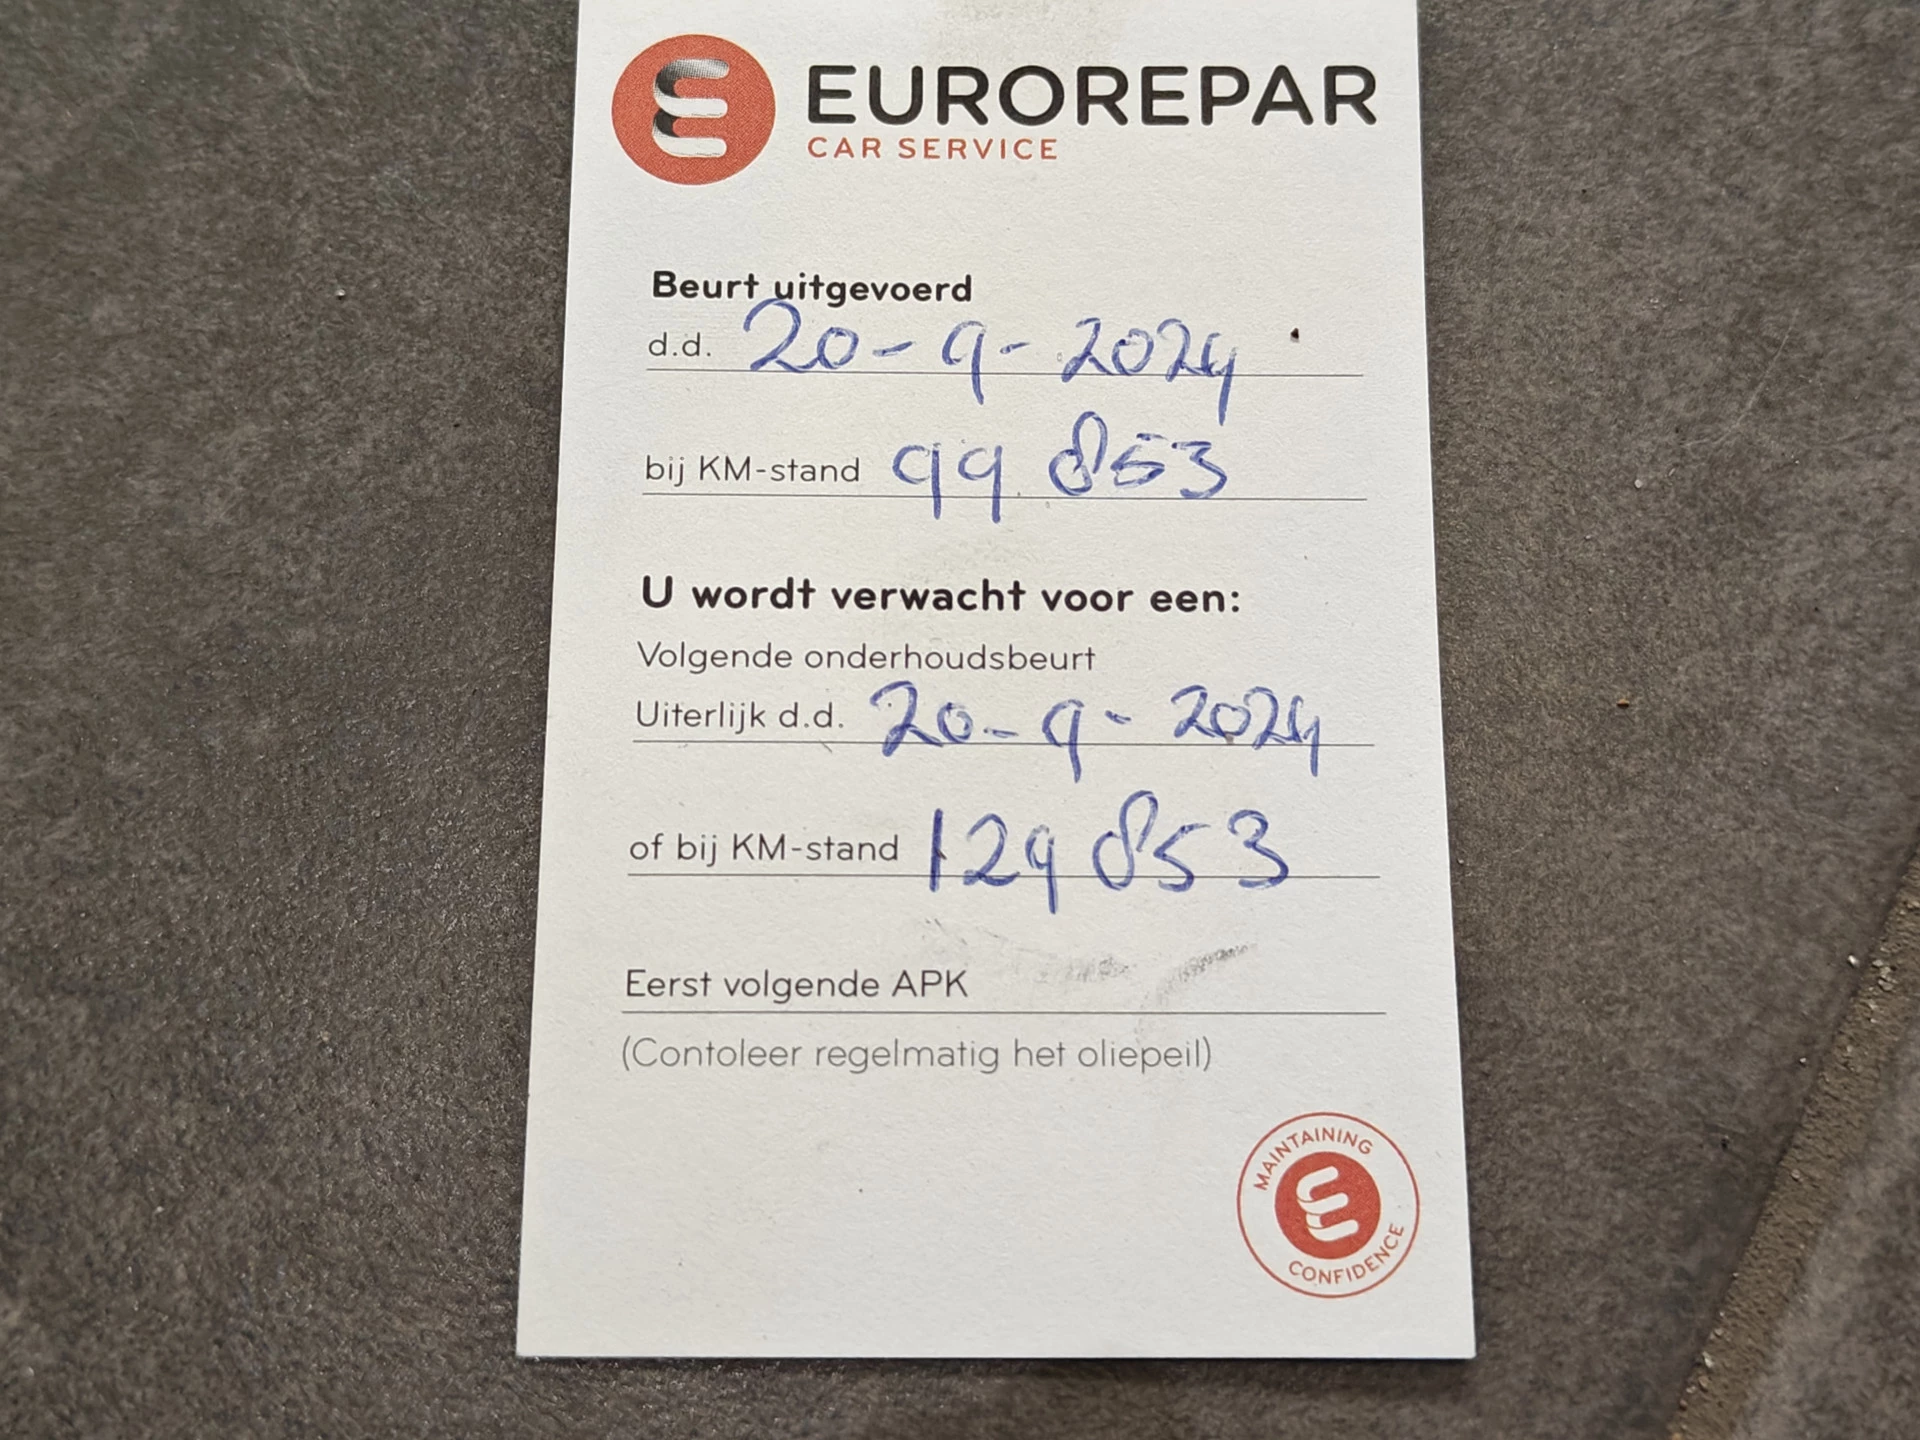 EUROREPAR
CAR SERVICE
Beurt uitgevoerd
d.d. 20-9-2024
bij KM-stand 99 853
U wordt verwacht voor een:
Volgende onderhoudsbeurt
Uiterlijk d.d. 20-9-2024
of bij KM-stand 129 853
Eerst volgende APK
(Contoleer regelmatig het oliepeil)
MAINTAINING
CONFIDENCE